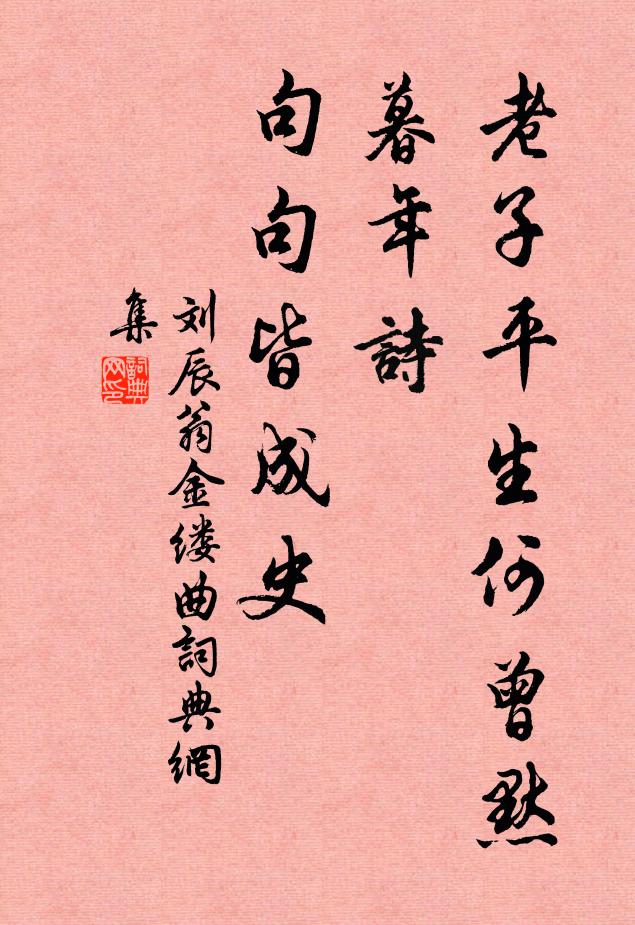 老子平生何曾默
暮年詩
句句皆成史
刘辰翁金缕曲詞典網
集
詞典
网印